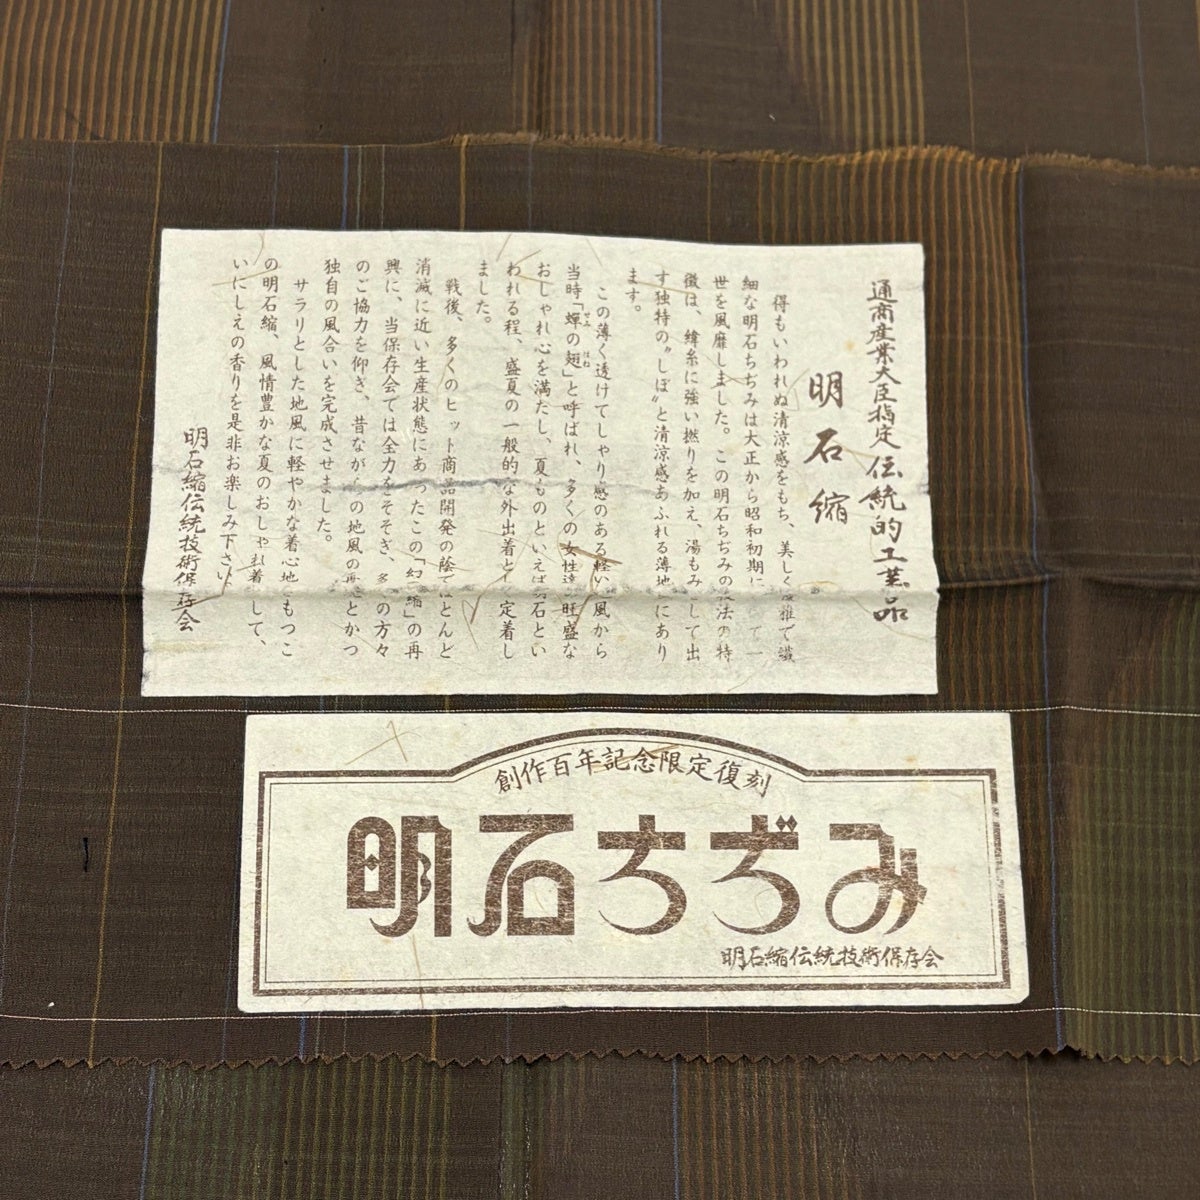 通商産業大臣指定 伝統的工芸品
明石縮
得もいわれぬ清涼感をもち、美しく優雅で繊
細な明石ちぢみは大正から昭和初期に 一
世を風靡しました。この明石ちぢみの技法の特
徴は、緯糸に強い撚りを加え、湯もみして出
す独特の〝しぼ〟と清涼感あふれる薄地にあり
ます。
この薄く透けてしゃり感のある軽い風から
当時「蟬の翅」と呼ばれ、多くの女性達の旺盛な
せみ はね
おしゃれ心を満たし、夏ものといえば明石とい
われる程、盛夏の一般的な外出着として定着し
ました。
戦後、多くのヒット商品開発の陰でほとんど
消滅に近い生産状態にあったこの「幻の縮」の再
興に、当保存会では全力をそそぎ、多くの方々
のご協力を仰ぎ、昔ながらの地風の再 とかつ
独自の風合いを完成させました。
サラリとした地風に軽やかな着心地をもつこ
の明石縮、風情豊かな夏のおしゃれ着として、
いにしえの香りを是非お楽しみ下さい
明石縮伝統技術保存会
創作百年記念限定復刻
明石ちぢみ
明石縮伝統技術保存会